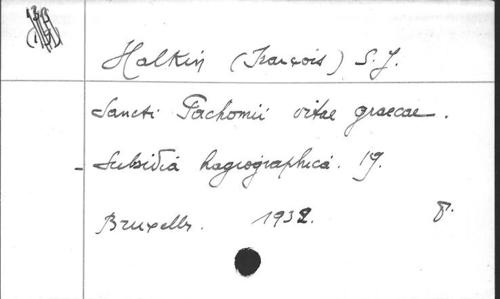 Halkin (François) S. J.
Sancti Pachomii vitae graecae.
- Subsidia hagiographica. 19.
Bruxelles. 1932. 8°.